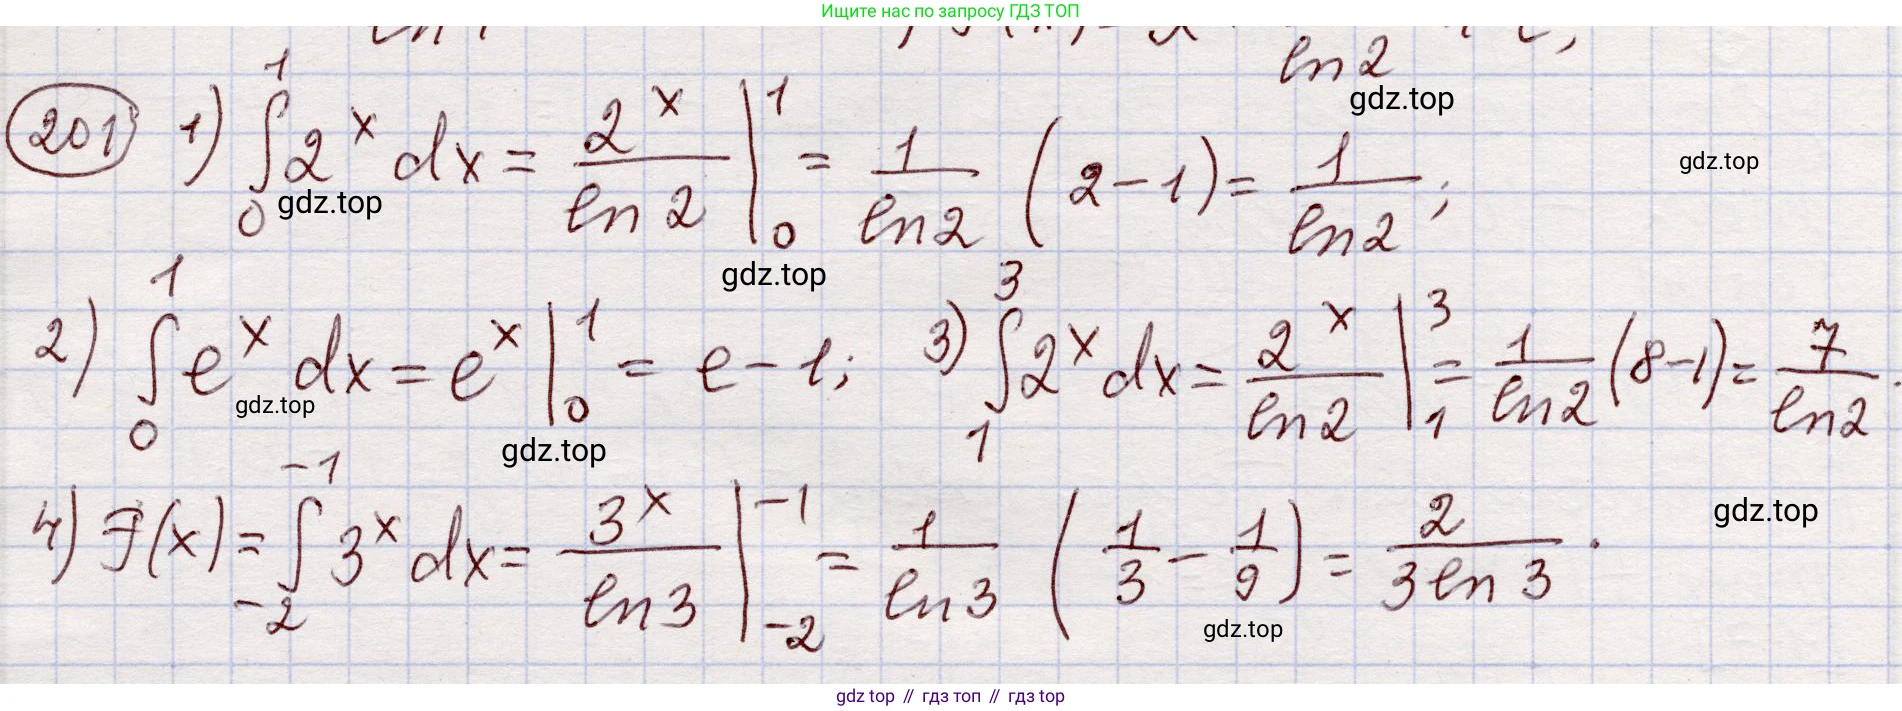 Ищите нас по запросу ГДЗ ТОП
ln2
gdz.top
201 1) ∫₀¹ 2ˣ dx = 2ˣ/ln 2 |₀¹ = 1/ln2 (2 − 1) = 1/ln2;
gdz.top
gdz.top
gdz.top
2) ∫₀¹ eˣ dx = eˣ |₀¹ = e − 1; 3) ∫₁³ 2ˣ dx = 2ˣ/ln2 |₁³ = 1/ln2 (8−1) = 7/ln2.
gdz.top
gdz.top
4) F(x) = ∫₋₂⁻¹ 3ˣ dx = 3ˣ/ln3 |₋₂⁻¹ = 1/ln3 (1/3 − 1/9) = 2/3 ln 3.
gdz.top
gdz.top
gdz top // гдз топ // гдз top